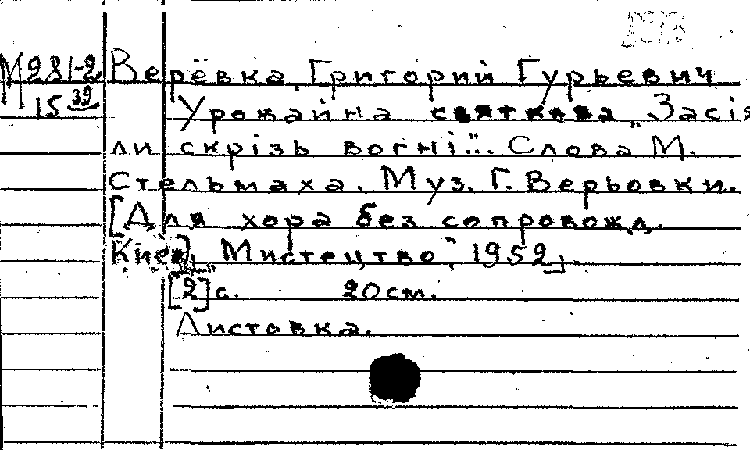 М281-2 Верёвка, Григорий Гурьевич
15 39 Урожайна святкова „Засія
ли скрізь вогні". Слова М.
Стельмаха. Муз. Г. Верьовки.
[Для хора без сопровожд.
Киев], „Мистецтво", 1952]
[2] с. 20см.
Листовка.